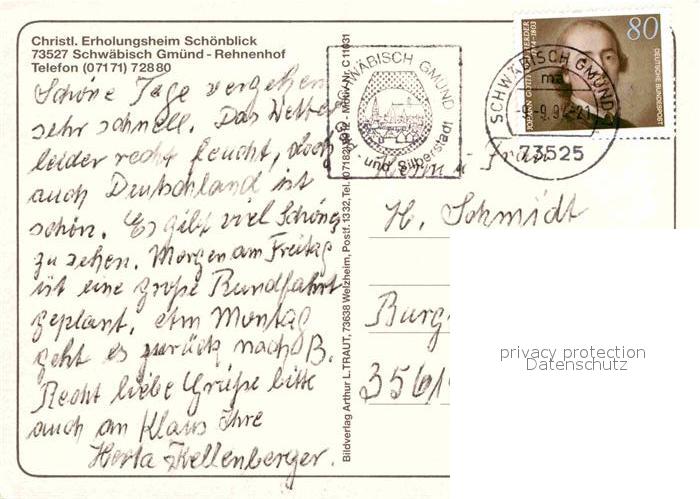 Christl. Erholungsheim Schönblick
73527 Schwäbisch Gmünd - Rehnenhof
Telefon (07171) 72880
Schöne Tage vergehen
sehr schnell. Das Wetter
leider recht feucht, doch
auch Deutschland ist
schön. Es gibt viel Schönes
zu sehen. Morgen am Freitag
ist eine große Rundfahrt
geplant, am Montag
geht es zurück nach B.
Recht liebe Grüße bitte
auch an Klaus Ihre
Herta Zellenberger.
Bildverlag Arthur L. TRAUT, 73638 Welzheim, Postf. 1332, Tel. 07182
Motiv-Nr. C 11031
SCHWÄBISCH GMÜND
- und Silberstadt
80
DEUTSCHE BUNDESPOST
JOHANN GOTTFRIED HERDER
1744-1803
SCHWÄBISCH GMÜND
ma
-9.94-21
73525
Frau
H. Schmidt
Burg
3561
privacy protection
Datenschutz